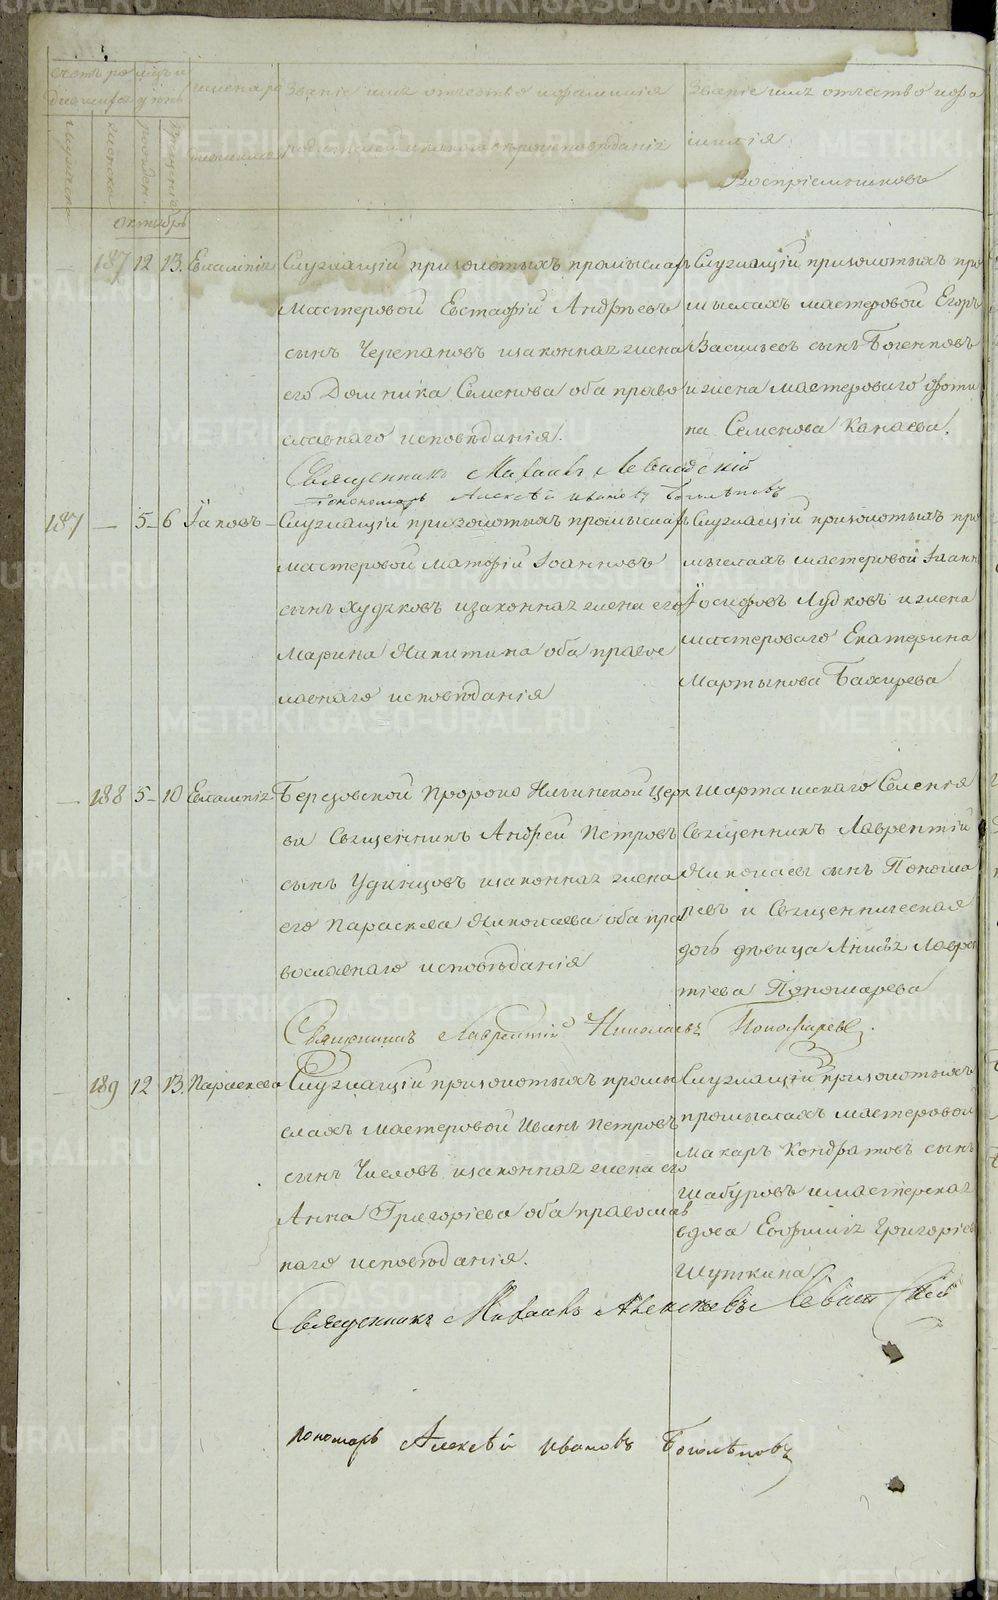 Счетъ ро
мцъ и
дившихся
дни
имена ро
Званіе имя отчество и фамилія
Званіе имя отчество и фа
мужеска
женска
рожден
крещенія
дившихся
родителей и какого вѣроисповѣданія
милія
Воспріемниковъ
Октябрь
— 187 12 13. Евлампія Служащій призолотыхъ промыслахъ
мастеровой Евстафій Андреевъ
сынъ Черепановъ изаконная жена
его Домника Семенова оба право
славнаго исповѣданія.
Служащій призолотыхъ про
мыслахъ мастеровой Егоръ
Васильевъ сынъ
и жена мастероваго Фоти
на Семенова Канаева.
Священникъ Михаилъ Левиадскій
Пономарь Алексѣй Ивановъ Боголѣповъ
187 — 5 6 Іаковъ Служащій призолотыхъ промыслахъ
мастеровой Матфій Іоанновъ
сынъ Худяковъ изаконная жена его
Марина Никитина оба право
славнаго исповѣданія
Служащій призолотыхъ про
мыслахъ мастеровой Іоанн
Іосифовъ Лудковъ и жена
мастероваго Екатерина
Мартынова Бахирева
— 188 5 10 Евлампія Березовской Пророко Ильинской Церк
ви Священникъ Андрей Петровъ
сынъ Удинцовъ изаконная жена
его Параскева Николаева оба пра
вославнаго исповѣданія
Шарташскаго Селенія
Священникъ Лаврентій
Николаевъ сынъ Понома
ревъ и Священническая
дочь дѣвица Анисья Лавре
тіева Пономарева
Священникъ Лаврентій Николаевъ Пономаревъ.
— 189 12 13. Параскева Служащій призолотыхъ промы
слахъ мастеровой Иванъ Петровъ
сынъ Числовъ изаконная жена его
Анна Григоріева оба православ
наго исповѣданія.
Служащій призолотыхъ
промыслахъ мастеровой
Макаръ Кондратовъ сынъ
Шабуровъ имастерская
вдова Евфимія Григоріев
Шуткина
Священникъ Михаилъ Алексѣевъ Левиадскій
пономарь Алексѣй Ивановъ Боголѣповъ
METRIKI.GASO-URAL.RU